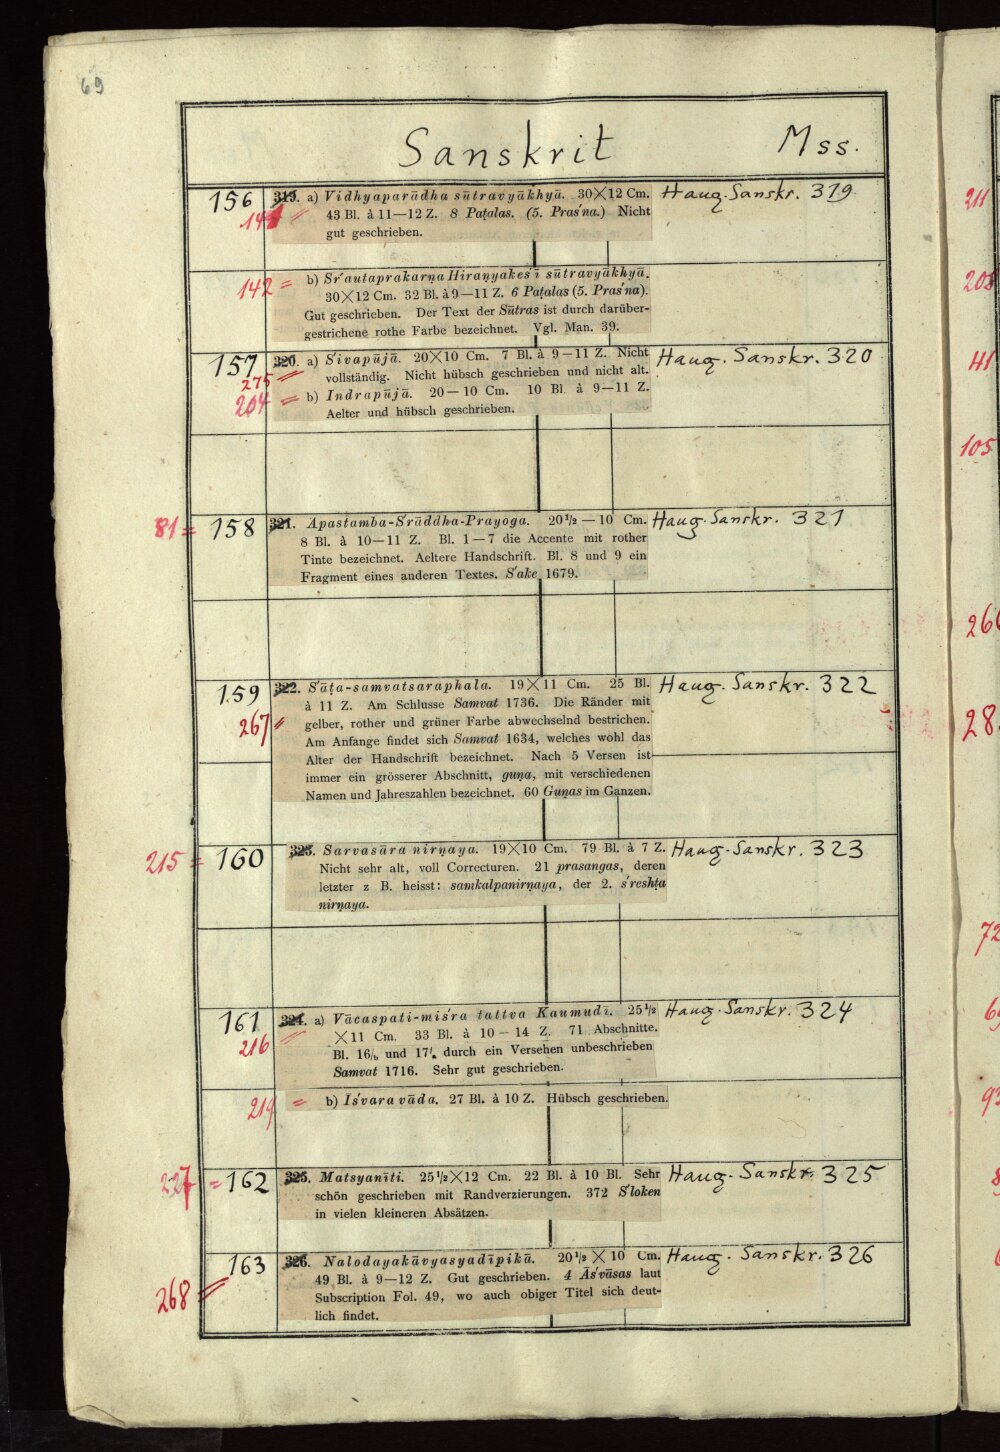 69
Sanskrit Mss.
156 319. a) Vidhyaparādha sūtravyākhyā. 30×12 Cm. Haug. Sanskr. 319
43 Bl. à 11—12 Z. 8 Paṭalas. (5. Pras'na.) Nicht
gut geschrieben.
142 = b) S'rautaprakarṇa Hiraṇyakes'i sūtravyākhyā.
30×12 Cm. 32 Bl. à 9—11 Z. 6 Paṭalas (5. Pras'na).
Gut geschrieben. Der Text der Sūtras ist durch darüber-
gestrichene rothe Farbe bezeichnet. Vgl. Man. 39.
157 320. a) S'ivapūjā. 20×10 Cm. 7 Bl. à 9—11 Z. Nicht Haug. Sanskr. 320
275 = vollständig. Nicht hübsch geschrieben und nicht alt.
204 = b) Indrapūjā. 20—10 Cm. 10 Bl. à 9—11 Z.
Aelter und hübsch geschrieben.
81 = 158 321. Apastamba-S'rāddha-Prayoga. 20½—10 Cm. Haug. Sanskr. 321
8 Bl. à 10—11 Z. Bl. 1—7 die Accente mit rother
Tinte bezeichnet. Aeltere Handschrift. Bl. 8 und 9 ein
Fragment eines anderen Textes. S'ake 1679.
159 322. S'āṭa-samvatsaraphala. 19×11 Cm. 25 Bl. Haug. Sanskr. 322
à 11 Z. Am Schlusse Samvat 1736. Die Ränder mit
267 = gelber, rother und grüner Farbe abwechselnd bestrichen.
Am Anfange findet sich Samvat 1634, welches wohl das
Alter der Handschrift bezeichnet. Nach 5 Versen ist
immer ein grösserer Abschnitt, guṇa, mit verschiedenen
Namen und Jahreszahlen bezeichnet. 60 Guṇas im Ganzen.
215 = 160 323. Sarvasāra nirṇaya. 19×10 Cm. 79 Bl. à 7 Z. Haug. Sanskr. 323
Nicht sehr alt, voll Correcturen. 21 prasangas, deren
letzter z B. heisst: samkalpanirṇaya, der 2. s'reshṭa
nirṇaya.
161 324. a) Vācaspati-mis'ra tattva Kaumudī. 25½ Haug. Sanskr. 324
216 = ×11 Cm. 33 Bl. à 10—14 Z. 71 Abschnitte.
Bl. 16/b und 17/a durch ein Versehen unbeschrieben
Samvat 1716. Sehr gut geschrieben.
= b) Īs'varavāda. 27 Bl. à 10 Z. Hübsch geschrieben.
= 162 325. Matsyanīti. 25½×12 Cm. 22 Bl. à 10 Bl. Sehr Haug. Sanskr. 325
schön geschrieben mit Randverzierungen. 372 S'loken
in vielen kleineren Absätzen.
163 326. Nalodayakāvyasyadīpikā. 20½×10 Cm. Haug. Sanskr. 326
49 Bl. à 9—12 Z. Gut geschrieben. 4 Ās'vāsas laut
268 = Subscription Fol. 49, wo auch obiger Titel sich deut-
lich findet.
211
41
105
72